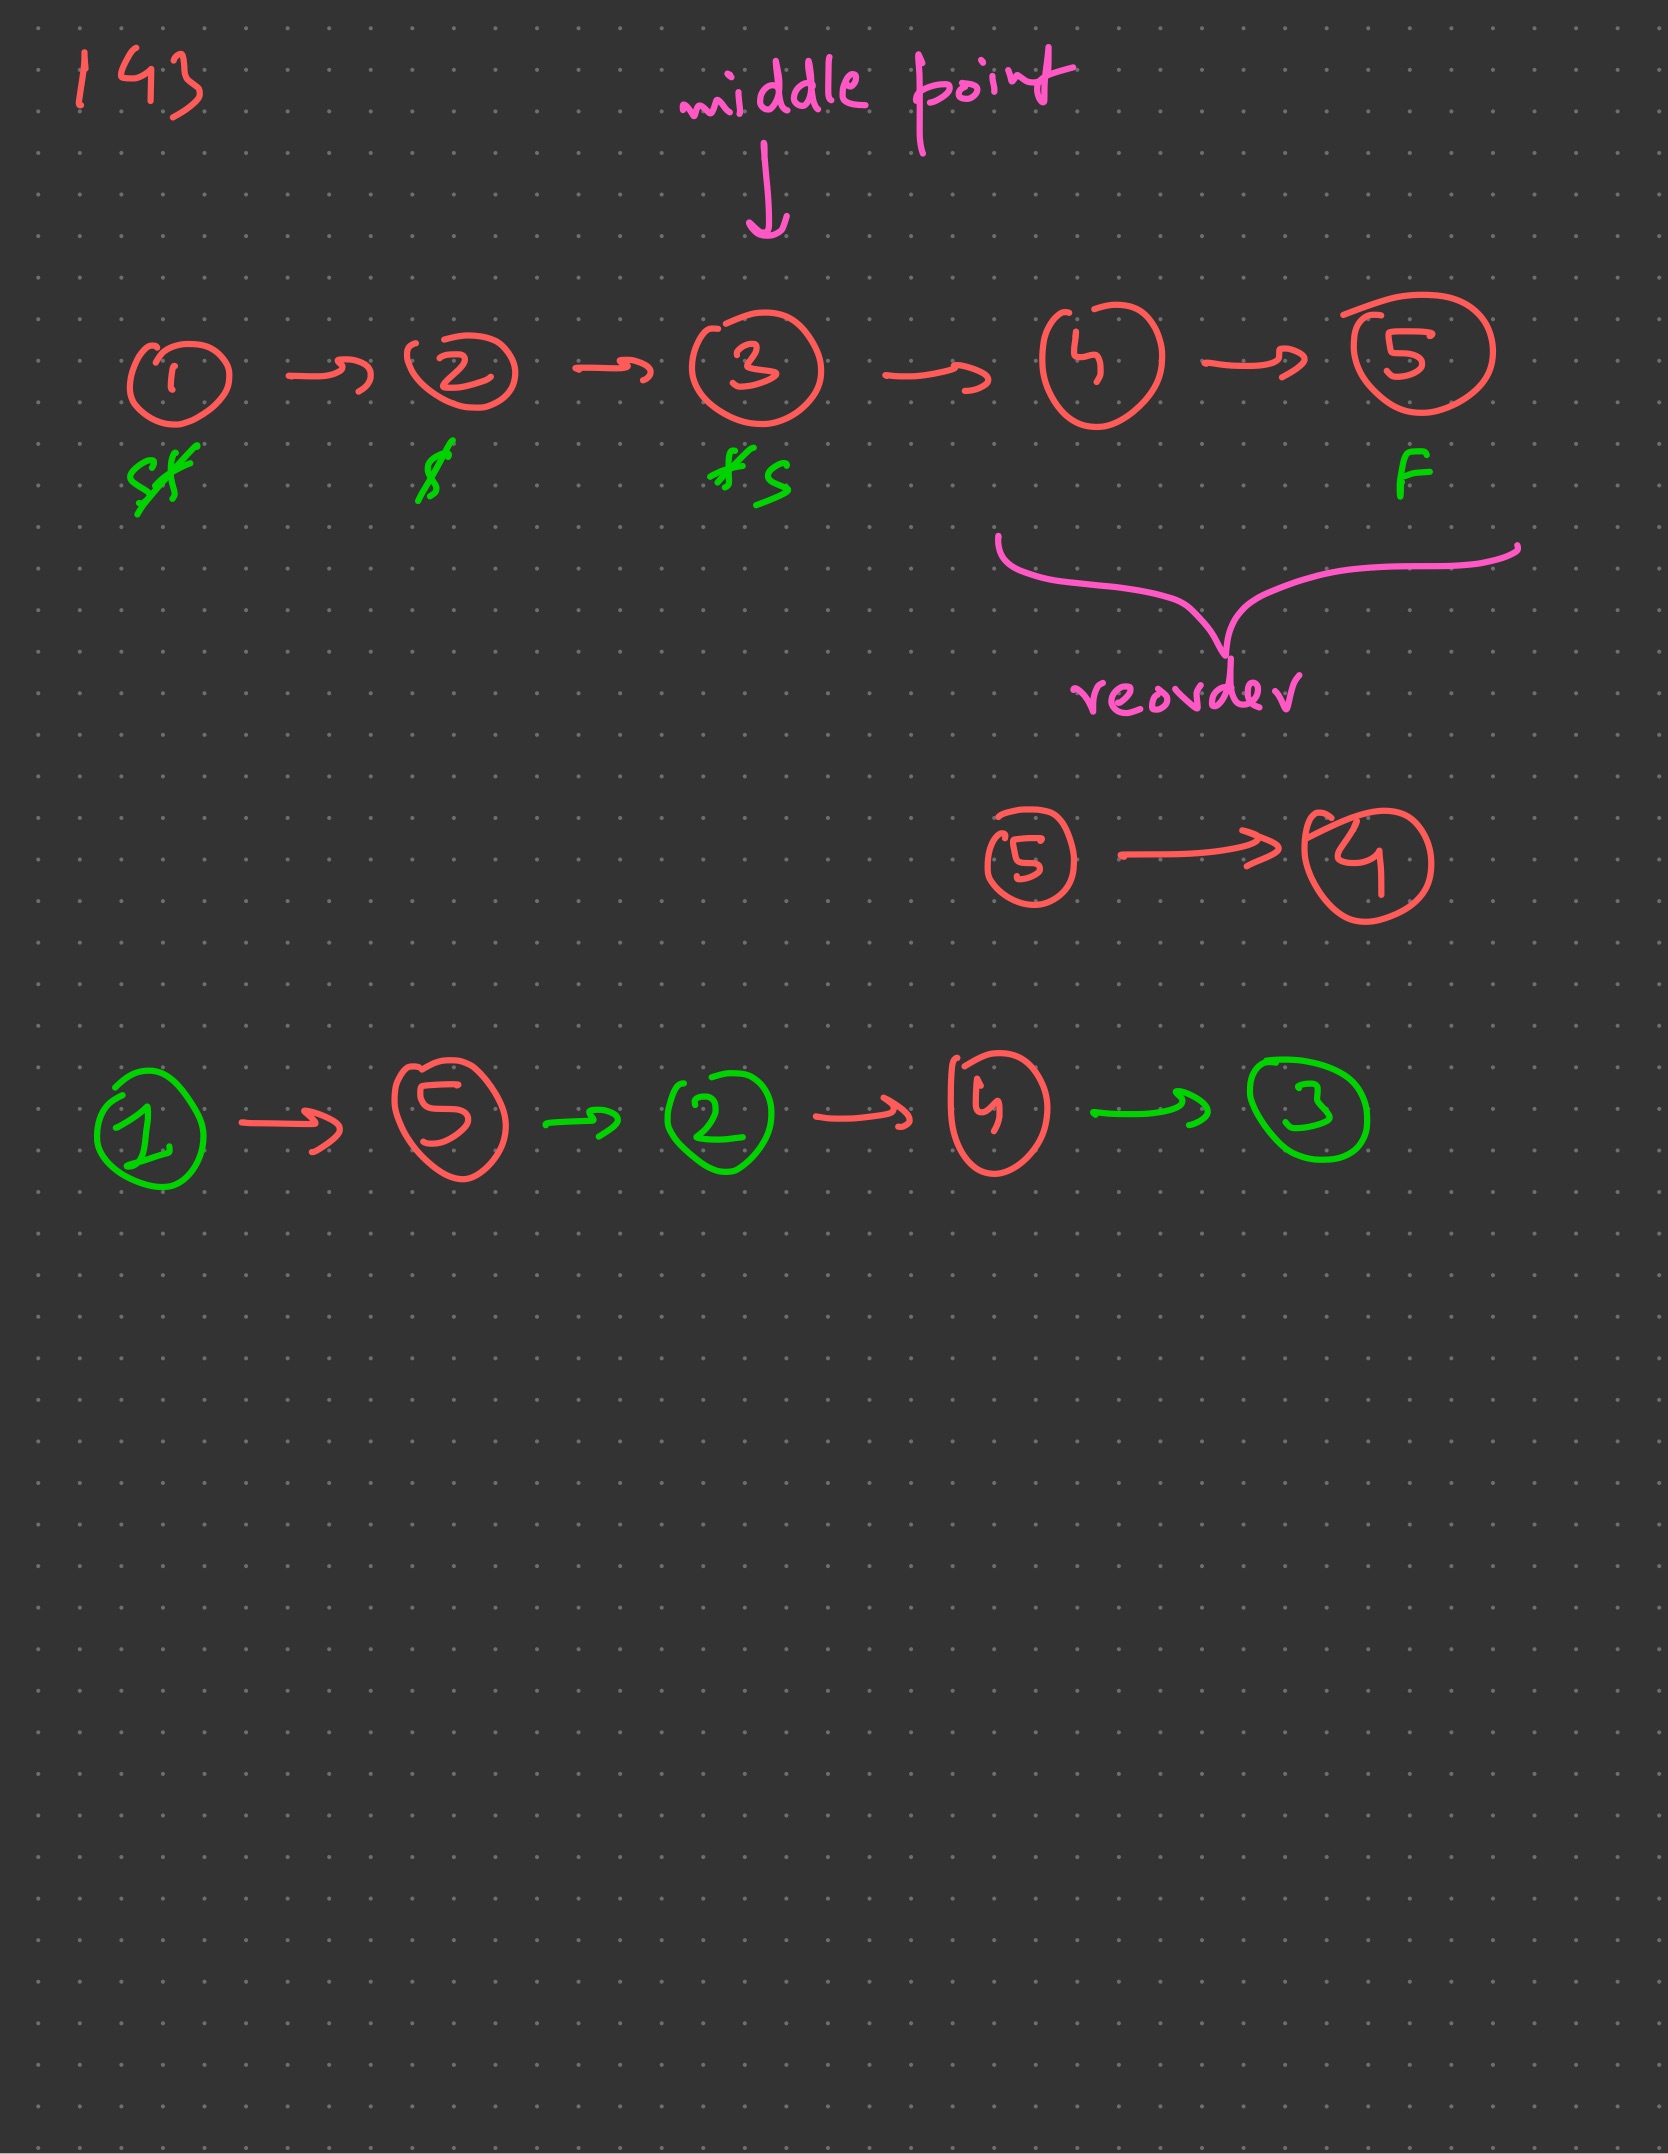 143
middle point
1 → 2 → 3 → 4 → 5
S F S F S F
reorder
5 → 4
1 → 5 → 2 → 4 → 3